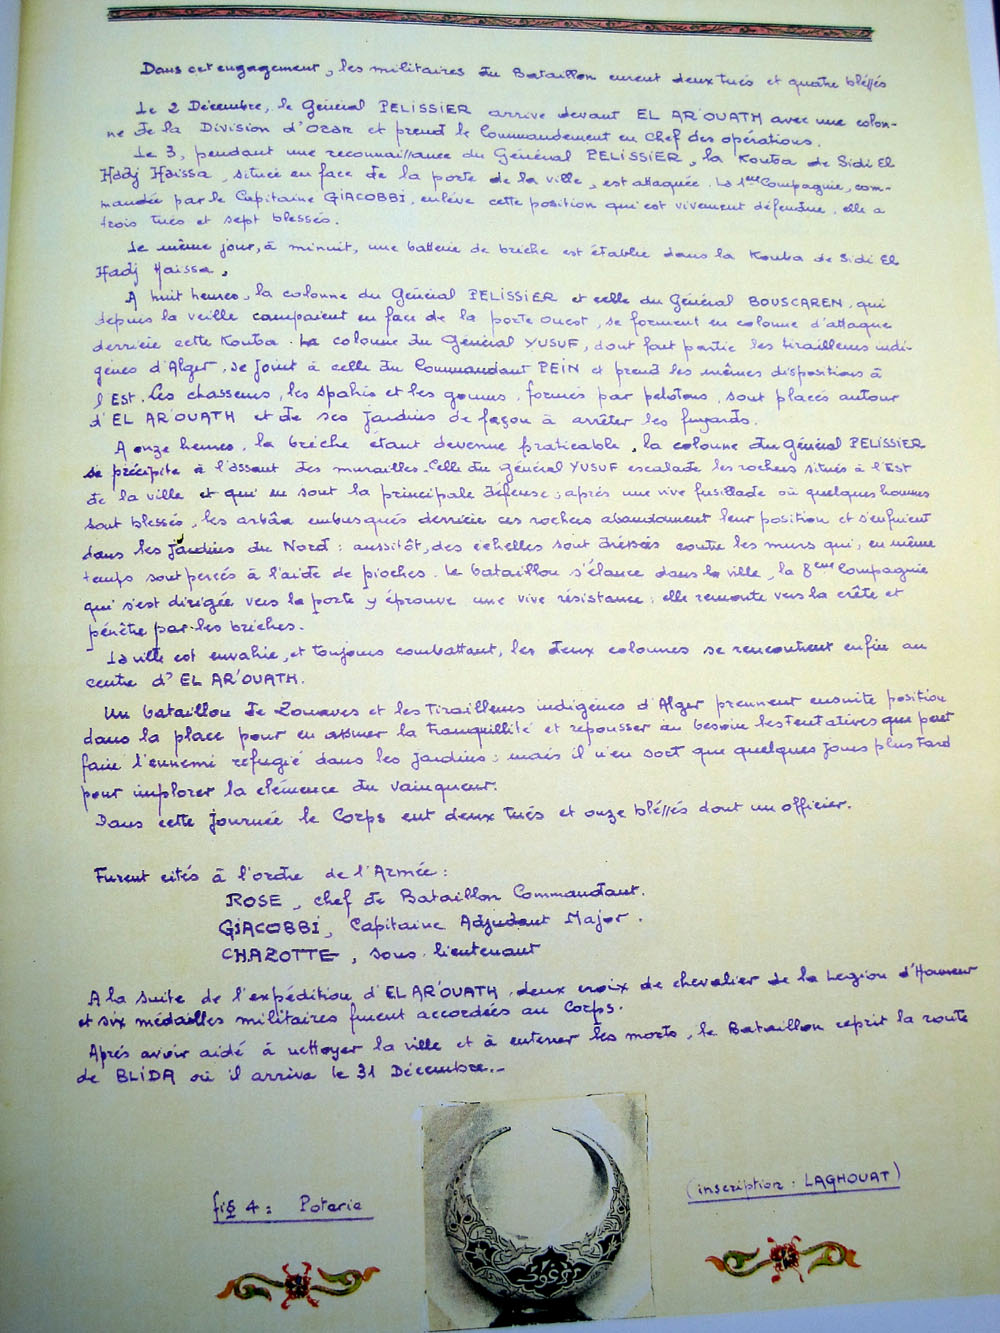 Dans cet engagement, les militaires du Bataillon eurent deux tués et quatre bléssés
Le 2 Décembre, le Général PELISSIER arrive devant EL AR'OUATH avec une colon-
ne de la Division d'Oran et prend le Commandement en Chef des opérations.
Le 3, pendant une reconnaissance du Général PELISSIER, la Kouba de Sidi El
Hadj Haissa, située en face de la porte de la ville, est attaquée. La 1ère Compagnie, com-
mandée par le Capitaine GIACOBBI, enlève cette position qui est vivement défendue, elle a
trois tués et sept blessés.
Le même jour, à minuit, une batterie de brèche est établie dans la Kouba de Sidi El
Hadj Haissa.
A huit heures, la colonne du Général PELISSIER et celle du Général BOUSCAREN, qui
depuis la veille campaient en face de la porte Ouest, se forment en colonne d'attaque
derrière cette Kouba. La colonne du Général YUSUF, dont fait partie les tirailleurs indi-
gènes d'Alger, se joint à celle du Commandant PEIN et prend les mêmes dispositions à
l'Est. Les chasseurs, les spahis et les goums, formés par pelotons, sont placés autour
d'EL AR'OUATH et de ses jardins de façon à arrêter les fuyards.
A onze heures, la brèche étant devenue praticable, la colonne du Général PELISSIER
se précipite à l'assaut des murailles. Celle du Général YUSUF escalade les rochers situés à l'Est
de la ville et qui en sont la principale défense; aprés une vive fusillade où quelques hommes
sont blessés, les arbâa embusqués derrière ces rochers abandonnent leur position et s'enfuient
dans les jardins du Nord: aussitôt, des échelles sont dréssées contre les murs qui, en même
temps sont percés à l'aide de pioches. Le bataillon s'élance dans la ville, la 8ème Compagnie
qui s'est dirigée vers la porte y éprouve une vive résistance: elle remonte vers la crête et
pénètre par les brèches.
La ville est envahie, et toujours combattant, les deux colonnes se rencontrent enfin au
centre d'EL AR'OUATH.
Un bataillon de Zouaves et les Tirailleurs indigènes d'Alger prennent ensuite position
dans la place pour en assurer la tranquillité et repousser au besoin les tentatives que peut
faire l'ennemi réfugié dans les jardins; mais il n'en sort que quelques jours plus tard
pour implorer la clémence du vainqueur.
Dans cette journée le Corps eut deux tués et onze bléssés dont un officier.
Furent cités à l'ordre de l'Armée:
ROSE, chef de Bataillon Commandant.
GIACOBBI, Capitaine Adjudant Major.
CHAZOTTE, sous-lieutenant
A la suite de l'expédition d'EL AR'OUATH, deux croix de chevalier de la Legion d'Honneur
et six médailles militaires furent accordées au Corps.
Aprés avoir aidé à nettoyer la ville et à enterrer les morts, le Bataillon reprit la route
de BLIDA où il arriva le 31 Décembre.-
fig 4: Poterie
(inscription: LAGHOUAT)